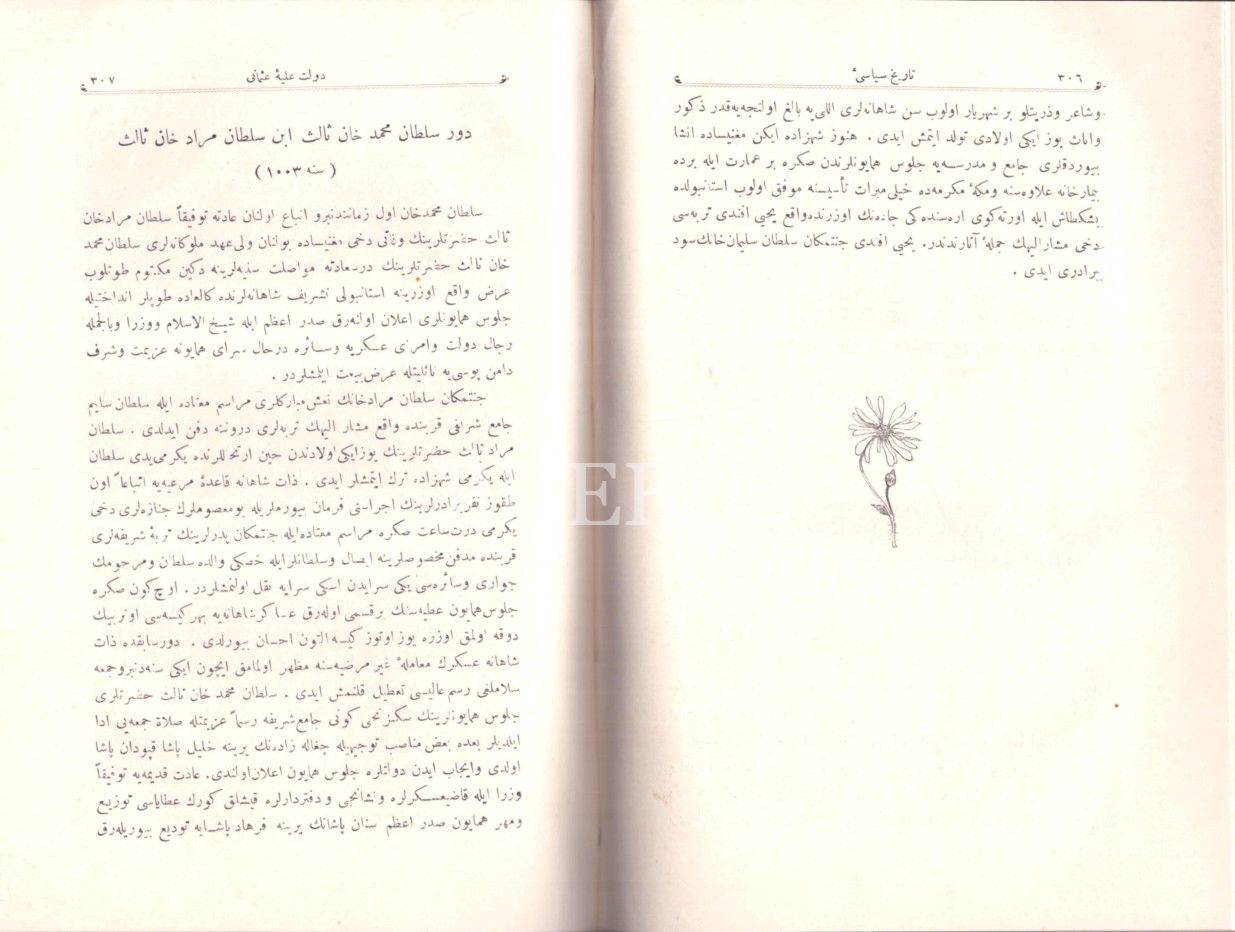 ٣٠٦
تاريخ سياسئ
وشاعر وذريتلو بر شهريار اولوب سن شاهانه‌لرى اللى‌يه بالغ اولنجه‌يه‌قدر ذكور
واناث يوز ايكى اولادى تولد ايتمش ايدى . هنوز شهزاده ايكن مغنيساده انشا
بيوردقلرى جامع و مدرسه‌يه جلوس همايونلرندن صكره بر عمارت ايله برده
بيمارخانه علاوه‌سنه ومكهٔ مكرمه‌ده خيلى مبرات تأسيسنه موفق اولوب استانبولده
بشكطاش ايله اورته‌كوى اره‌سنده كى جاده‌نك اوزرنده‌واقع يحيى افندى تربه‌سى
دخى مشاراليهك جملهٔ آثارندندر. يحيى افندى جنتمكان سلطان سليمان‌خانك‌سود
برادرى ايدى .
دولت عليهٔ عثمانى
٣٠٧
دور سلطان محمد خان ثالث ابن سلطان مراد خان ثالث
( سنه ١٠٠٣ )
سلطان محمدخان اول زمانندنبرو اتباع اولنان عادته توفيقاً سلطان مرادخان
ثالث حضرتلرينك وفاتى دخى مغنيساده بولنان ولى‌عهد ملوكانه‌لرى سلطان‌محمد
خان ثالث حضرتلرينك درسعادته مواصلت سنيه‌لرينه دكين مكتوم طوتلوب
عرض واقع اوزرينه استانبولى تشريف شاهانه‌لرنده كالعاده طوپلر انداختيله
جلوس همايونلرى اعلان اولنه‌رق صدر اعظم ايله شيخ الاسلام ووزرا وبالجمله
رجال دولت وامراى عسكريه وسائره درحال سراى همايونه عزيمت وشرف
دامن بوسى‌يه نائليتله عرض‌بيعت ايلمشلردر .
جنتمكان سلطان مرادخانك نعش‌مباركلرى مراسم معتاده ايله سلطان سليم
جامع شريفى قربنده واقع مشار اليهك تربه‌لرى دروننه دفن ايدلدى . سلطان
مراد ثالث حضرتلرينك يوزايكى‌اولادندن حين ارتحاللرنده يكرمى‌يدى سلطان
ايله يكرمى شهزاده ترك ايتمشلر ايدى . ذات شاهانه قاعدهٔ مرعيه‌يه اتباعاً اون
طقوز نفر برادرلرينك اجراسنى فرمان بيورملريله بومعصوملرك جنازه‌لرى دخى
يكرمى درت‌ساعت صكره مراسم معتاده‌ايله جنتمكان پدرلرينك تربهٔ شريفه‌لرى
قربنده مدفن‌مخصوصلرينه ايصال وسلطانلرايله خصكى والده سلطان ومرحومك
جوارى وسائره‌سى يكى سرايدن اسكى سرايه نقل اولنمشلردر . اوچ‌كون صكره
جلوس‌همايون عطيه‌سنك برقسمى اوله‌رق عساكرشاهانه‌يه بهركيسه‌سى اونربيك
دوقه اولمق اوزره يوز اوتوز كيسه التون احسان بيورلدى . دورسابقده ذات
شاهانه عسكرك معاملهٔ غير مرضيه‌سنه مظهر اولمامق ايچون ايكى سنه‌دنبروجمعه
سلاملغى رسم عاليسى تعطيل قلنمش ايدى . سلطان محمد خان ثالث حضرتلرى
جلوس همايونلرينك سكزنجى كونى جامع‌شريفه رسماً عزيمتله صلاة جمعه‌يى ادا
ايلديلر بعده بعض مناصب توجيهيله چغاله زاده‌نك يرينه خليل پاشا قپودان پاشا
اولدى وايجاب ايدن دولتلره جلوس همايون اعلان‌اولندى. عادت قديمه‌يه توفيقاً
وزرا ايله قاضيعسكرلره ونشانجى و دفتردارلره قيشلق كورك عطاياسى توزيع
ومهر همايون صدر اعظم سنان پاشانك يرينه فرهاد پاشايه توديع بيوريله‌رق